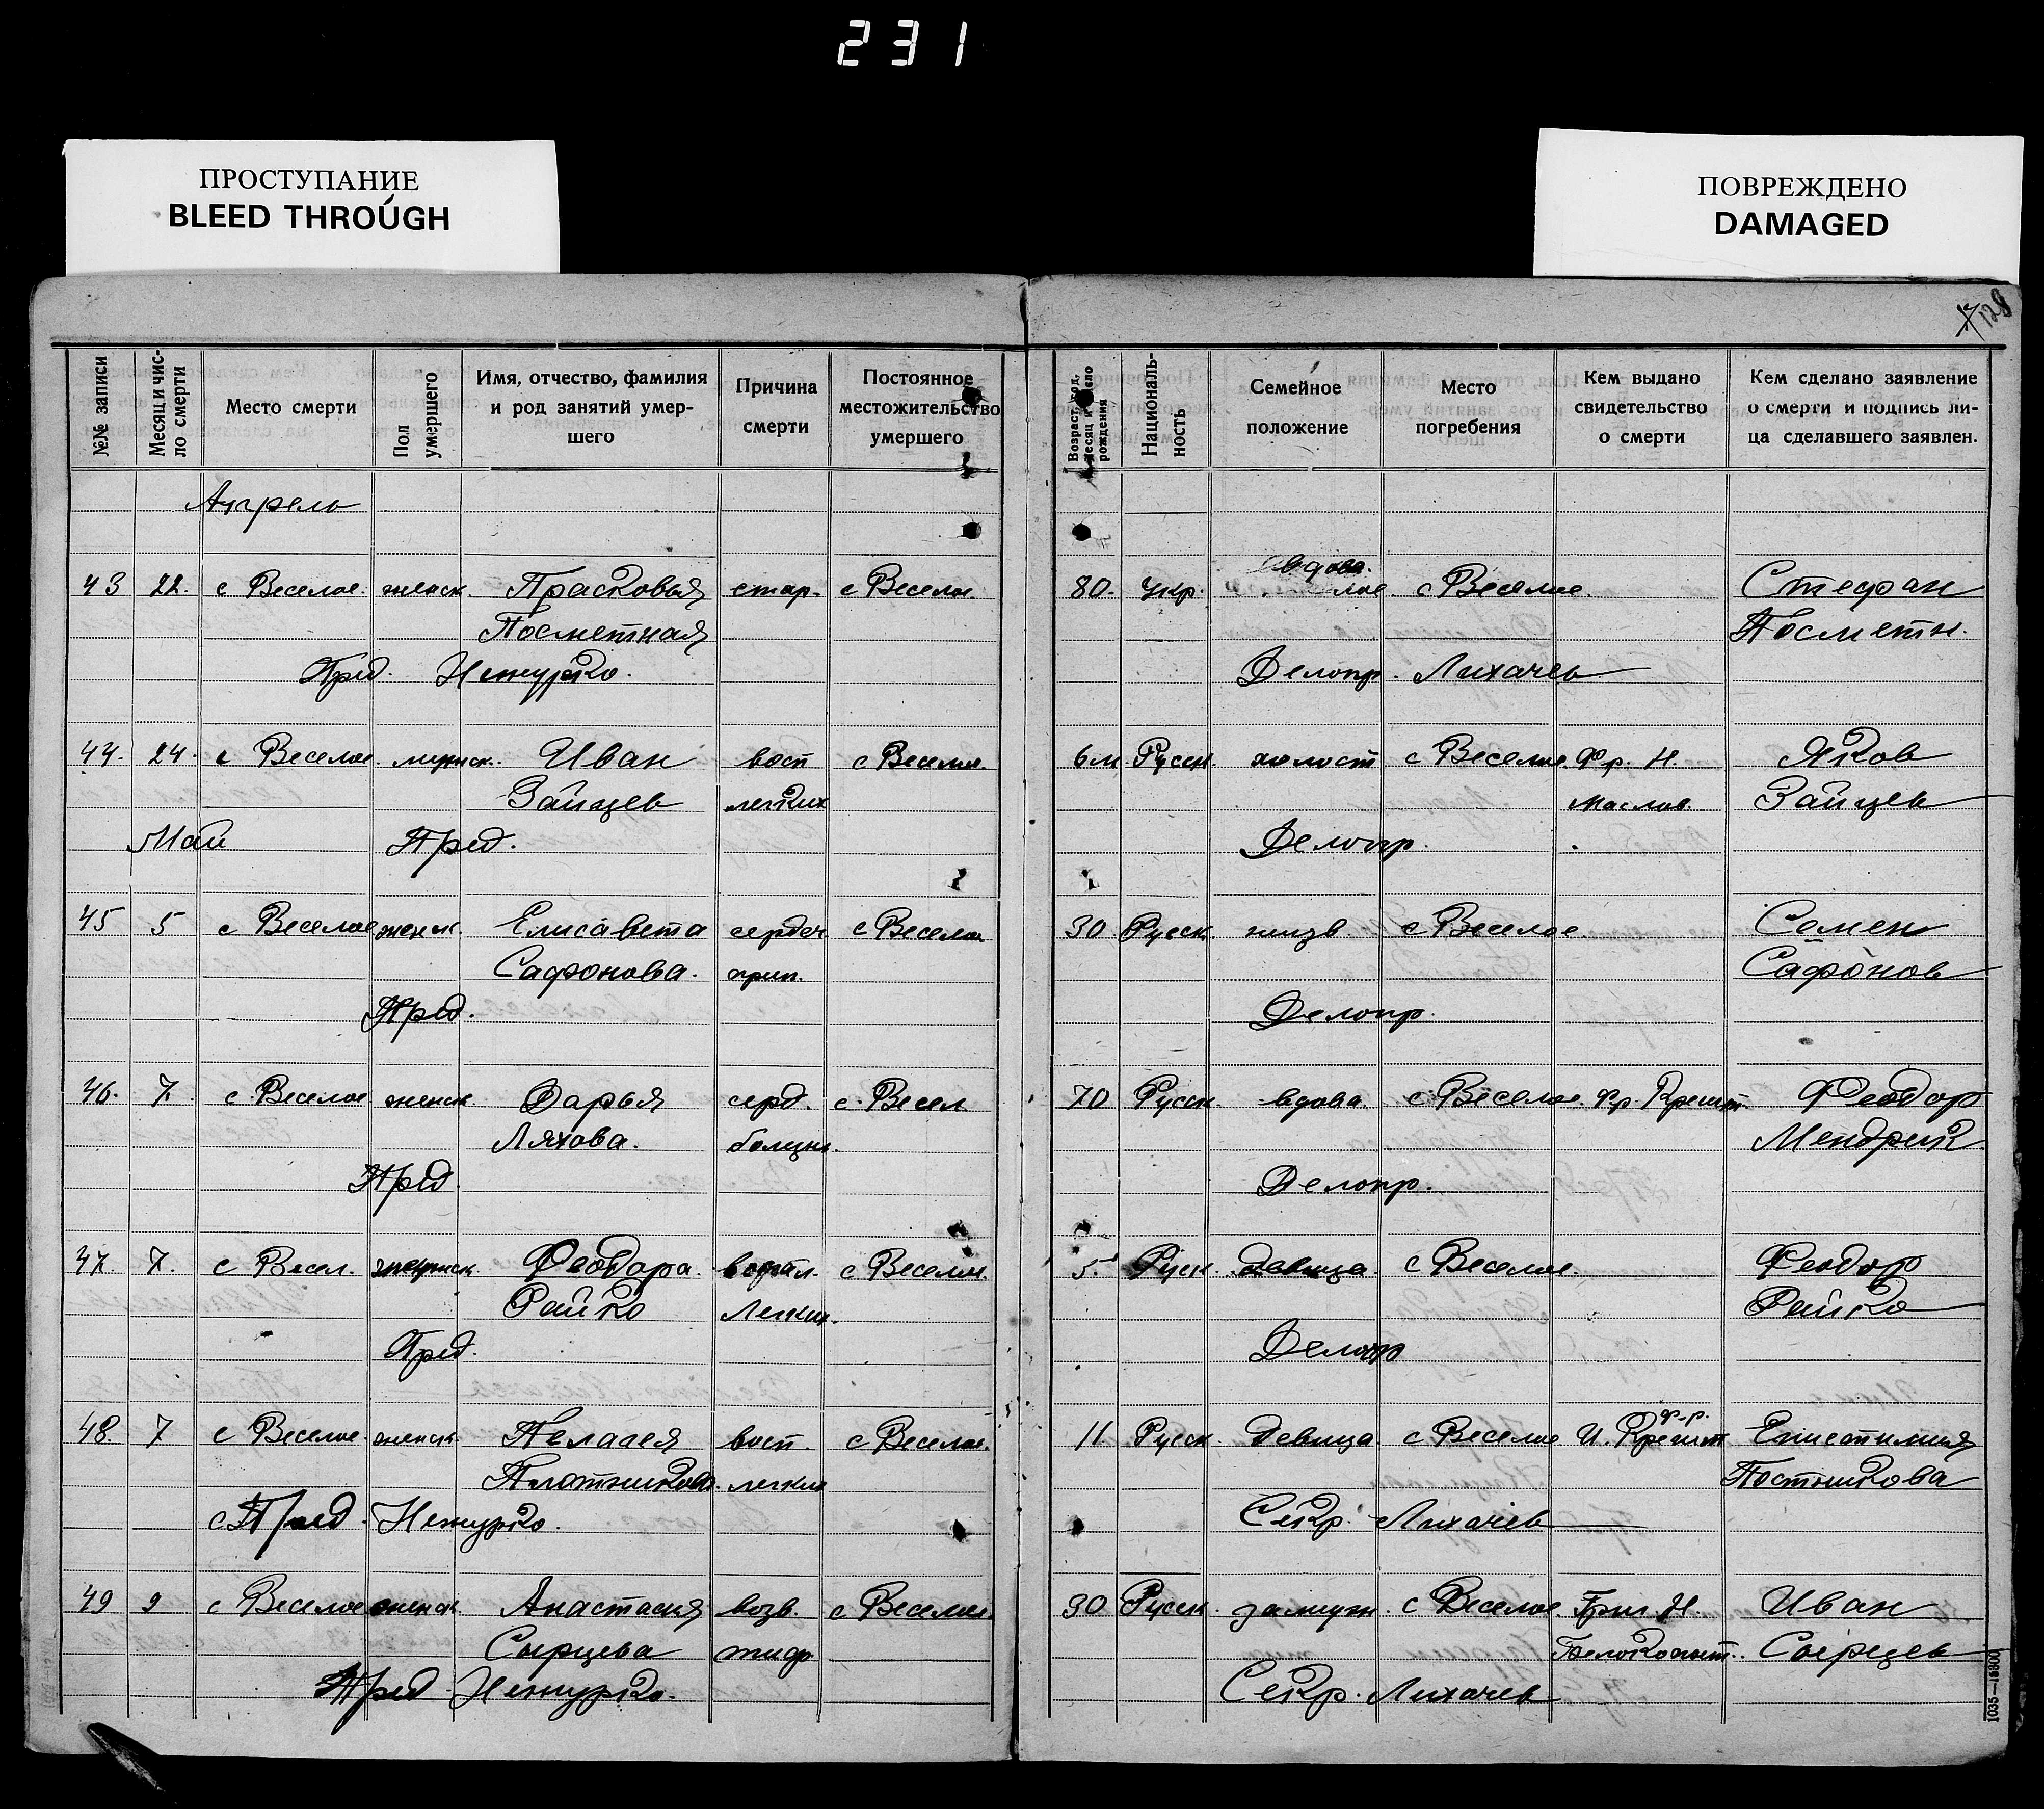 231
ПРОСТУПАНИЕ
BLEED THROUGH
ПОВРЕЖДЕНО
DAMAGED
128
№№ записи
Месяц и чис-
ло смерти
Место смерти
Пол
умершего
Имя, отчество, фамилия
и род занятий умер-
шего
Причина
смерти
Постоянное
местожительство
умершего
Возраст, год,
месяц и число
рождения
Националь-
ность
Семейное
положение
Место
погребения
Кем выдано
свидетельство
о смерти
Кем сделано заявление
о смерти и подпись ли-
ца сделавшего заявлен.
Апрель
вдова.
43 22. с Веселое. женск. Прасковья стар. с Веселое. 80. Укр. лое. с Веселое. Стефан
Посметная Посметн.
Пред. Ненурко. Делопр. Лихачев
44. 24. с Веселое. мужск. Иван восп с Веселое. 6 м Русск. холост с Веселое. Фр. Н. Яков
Зайцев легких Маслов. Зайцев
Май Пред. Делопр.
45 5 с Веселое женск Елисавета сердеч с Веселое 30 Русск. с Веселое Семен
Сафонова. прип. Сафонов
Пред. Делопр.
46. 7. с Веселое женск Дарья серд. с. Весел 70 Русск. вдова. с Веселое. Фр Феодор
Ляхова. болезнь. Мендрик
Пред. Делопр.
47. 7. с Весел. женск. Феодора. воспал. с Веселое. 5. Русск. девица. с Веселое. Феодор
Райко Легких. Райко
Пред. Делопр
ф-р.
48. 7 с Веселое. женск. Пелагея восп. с Веселое. 11 Русск. Девица. с Веселое И. Епистимия
легких Постникова
с Пред. Ненурко. Секр. Лихачев
49 9 с Веселое женск. Анастасия возв. с Веселое. 30 Русск. замужн. с Веселое. Григ Н. Иван
Сырцева тиф Белокопыт. Сырцев
Пред Ненурко. Секр. Лихачев
1035—15800